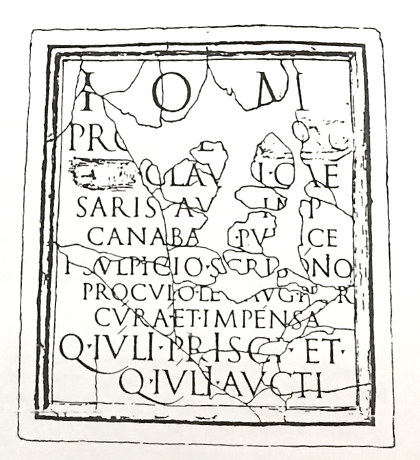 I O M
PRO
CLAV I·CAE
SARIS AV IM P
CANABA PV CE
SVLPICIO·SCRI NO
PROCVLO·LE AVG·P R
CVRA·ET·IMPENSA
Q·IVLI·PRISCI·ET·
Q·IVLI·AVCTI